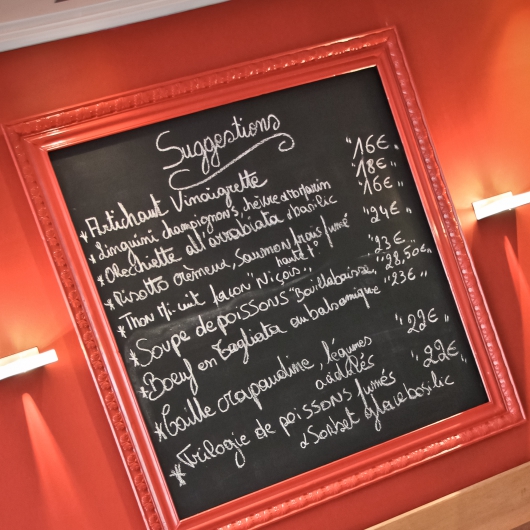 Suggestions
* Artichaut Vinaigrette "16€"
* Linguini champignons, chèvre et romarin "18€"
* Orechiette all'arrabiata & basilic "16€"
* Risotto crémeux, Saumon frais fumé "24€"
* Thon Mi-cuit façon "Niçois" "23€"
* Soupe de poissons "Bouillabaisse" "28,50€"
* Boeuf en Tagliata au balsamique "23€"
* Caille crapaudine, légumes "22€"
* Trilogie de poissons fumés "22€"
& Sorbet basilic